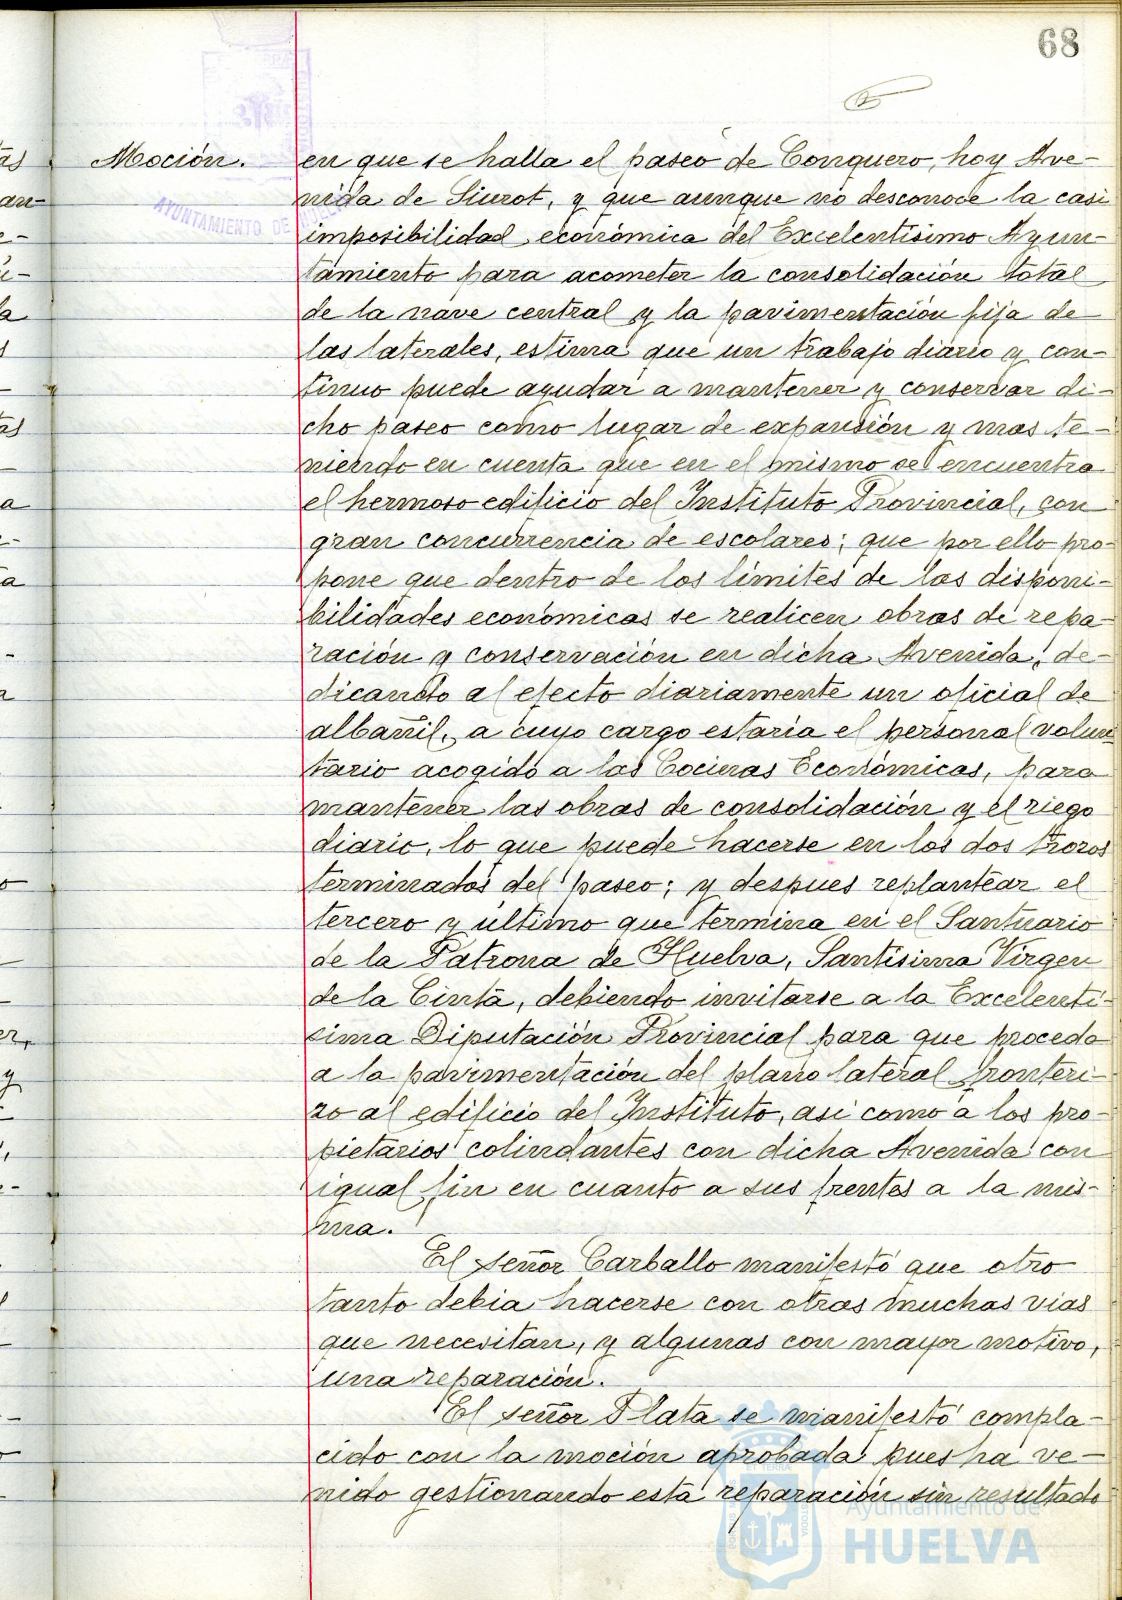 68
Moción.
en que se halla el paseo de Conquero, hoy Ave-
nida de Siurot, y que aunque no desconoce la casi
imposibilidad económica del Excelentísimo Ayun-
tamiento para acometer la consolidación total
de la nave central y la pavimentación fija de
las laterales, estima que un trabajo diario y con-
tinuo puede ayudar a mantener y conservar di-
cho paseo como lugar de expansión y mas te-
niendo en cuenta que en el mismo se encuentra
el hermoso edificio del Instituto Provincial, con
gran concurrencia de escolares; que por ello pro-
pone que dentro de los límites de las disponi-
bilidades económicas se realicen obras de repa-
ración y conservación en dicha Avenida, de-
dicando al efecto diariamente un oficial de
albañil, a cuyo cargo estaría el personal volun-
tario acogido a las Cocinas Económicas, para
mantener las obras de consolidación y el riego
diario, lo que puede hacerse en los dos trozos
terminados del paseo; y despues replantear el
tercero y último que termina en el Santuario
de la Patrona de Huelva, Santísima Virgen
de la Cinta, debiendo invitarse a la Excelentí-
sima Diputación Provincial para que proceda
a la pavimentación del plano lateral fronteri-
zo al edificio del Instituto, así como a los pro-
pietarios colindantes con dicha Avenida con
igual fin en cuanto a sus frentes a la mis-
ma.
El señor Carballo manifestó que otro
tanto debia hacerse con otras muchas vias
que necesitan, y algunas con mayor motivo,
una reparación.
El señor Plata se manifestó compla-
cido con la moción aprobada pues ha ve-
nido gestionando esta reparación sin resultado
AYUNTAMIENTO DE HUELVA
Ayuntamiento de
HUELVA